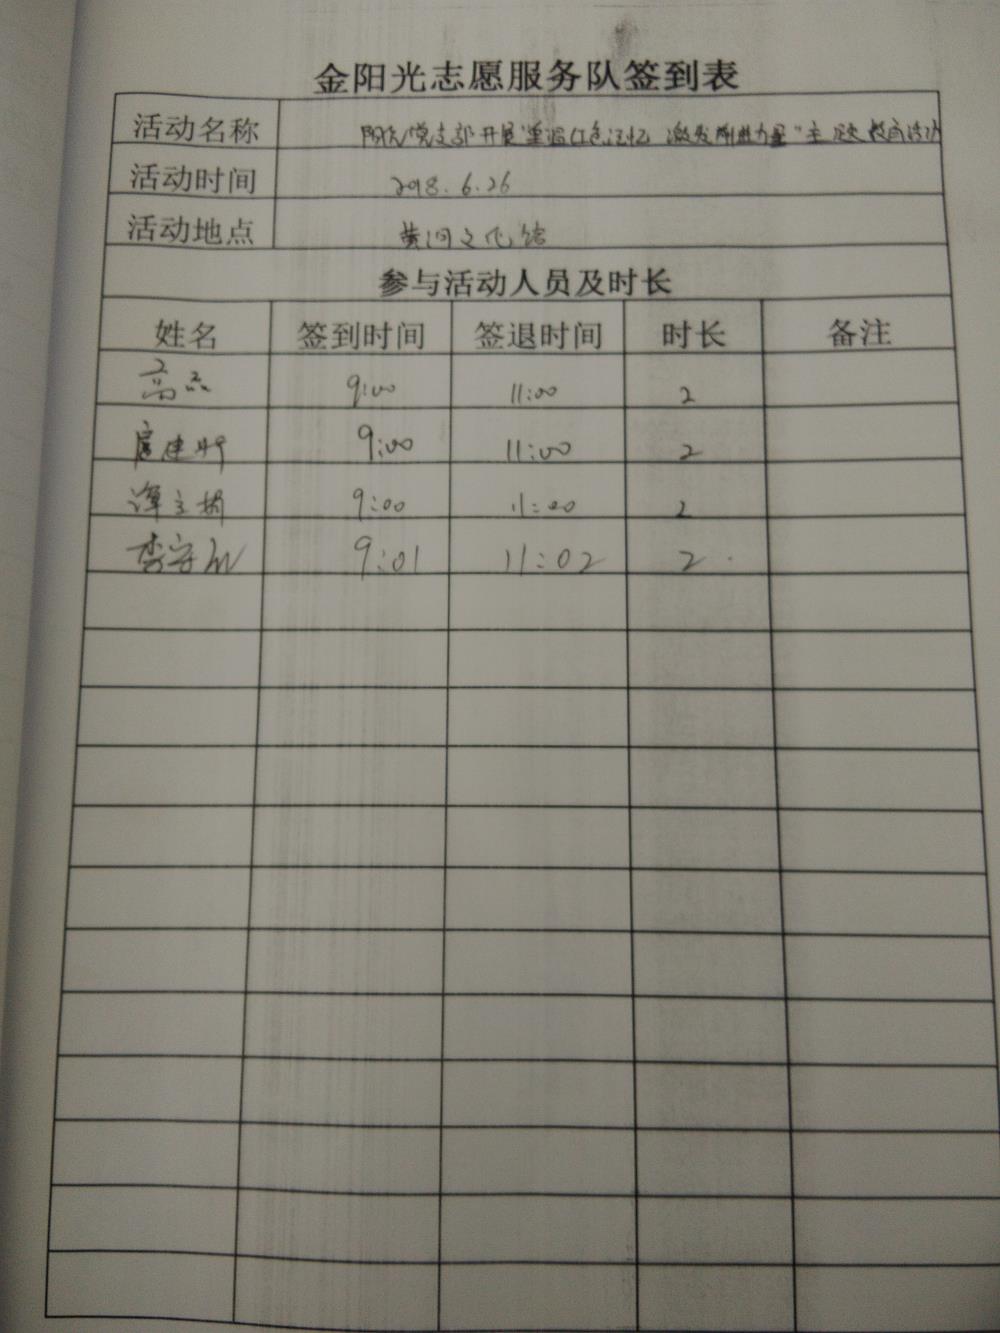 金阳光志愿服务队签到表
活动名称 党支部开展"重温红色记忆 激发前进力量"主题教育活动
活动时间 2018.6.26
活动地点 黄河文化馆
参与活动人员及时长
姓名 签到时间 签退时间 时长 备注
高 9:00 11:00 2
扈建 9:00 11:00 2
谭立 9:00 11:00 2
李守 9:01 11:02 2